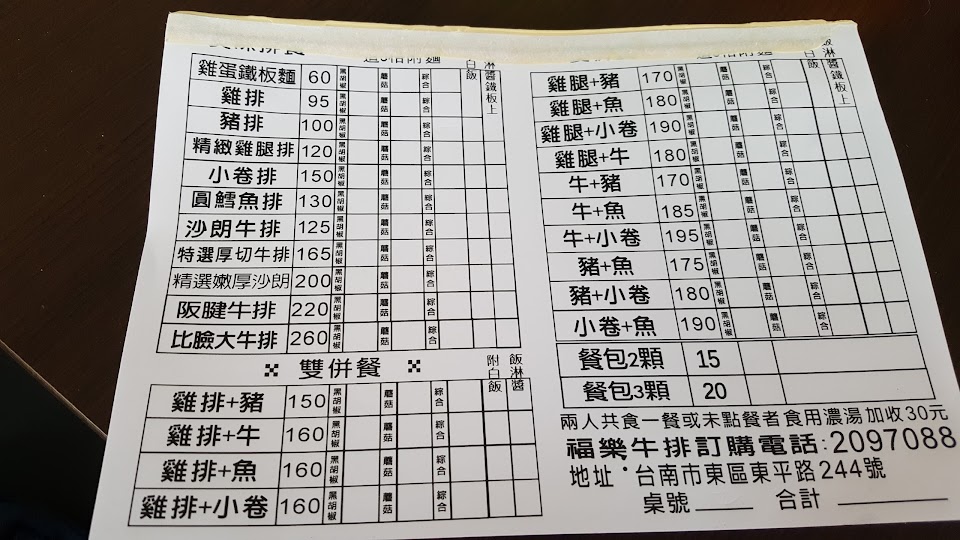 附麵
白飯 淋醬鐵板上
雞蛋鐵板麵 60 黑胡椒 蘑菇 綜合
雞排 95 黑胡椒 蘑菇 綜合
豬排 100 黑胡椒 蘑菇 綜合
精緻雞腿排 120 黑胡椒 蘑菇 綜合
小卷排 150 黑胡椒 蘑菇 綜合
圓鱈魚排 130 黑胡椒 蘑菇 綜合
沙朗牛排 125 黑胡椒 蘑菇 綜合
特選厚切牛排 165 黑胡椒 蘑菇 綜合
精選嫩厚沙朗 200 黑胡椒 蘑菇 綜合
阪腱牛排 220 黑胡椒 蘑菇 綜合
比臉大牛排 260 黑胡椒 蘑菇 綜合
雙併餐 附白飯 飯淋醬
雞排+豬 150 黑胡椒 蘑菇 綜合
雞排+牛 160 黑胡椒 蘑菇 綜合
雞排+魚 160 黑胡椒 蘑菇 綜合
雞排+小卷 160 黑胡椒 蘑菇 綜合
白飯 飯淋醬鐵板上
雞腿+豬 170 黑胡椒 蘑菇 綜合
雞腿+魚 180 黑胡椒 蘑菇 綜合
雞腿+小卷 190 黑胡椒 蘑菇 綜合
雞腿+牛 180 黑胡椒 蘑菇 綜合
牛+豬 170 黑胡椒 蘑菇 綜合
牛+魚 185 黑胡椒 蘑菇 綜合
牛+小卷 195 黑胡椒 蘑菇 綜合
豬+魚 175 黑胡椒 蘑菇 綜合
豬+小卷 180 黑胡椒 蘑菇 綜合
小卷+魚 190 黑胡椒 蘑菇 綜合
餐包2顆 15
餐包3顆 20
兩人共食一餐或未點餐者食用濃湯加收30元
福樂牛排訂購電話:2097088
地址:台南市東區東平路244號
桌號____ 合計______